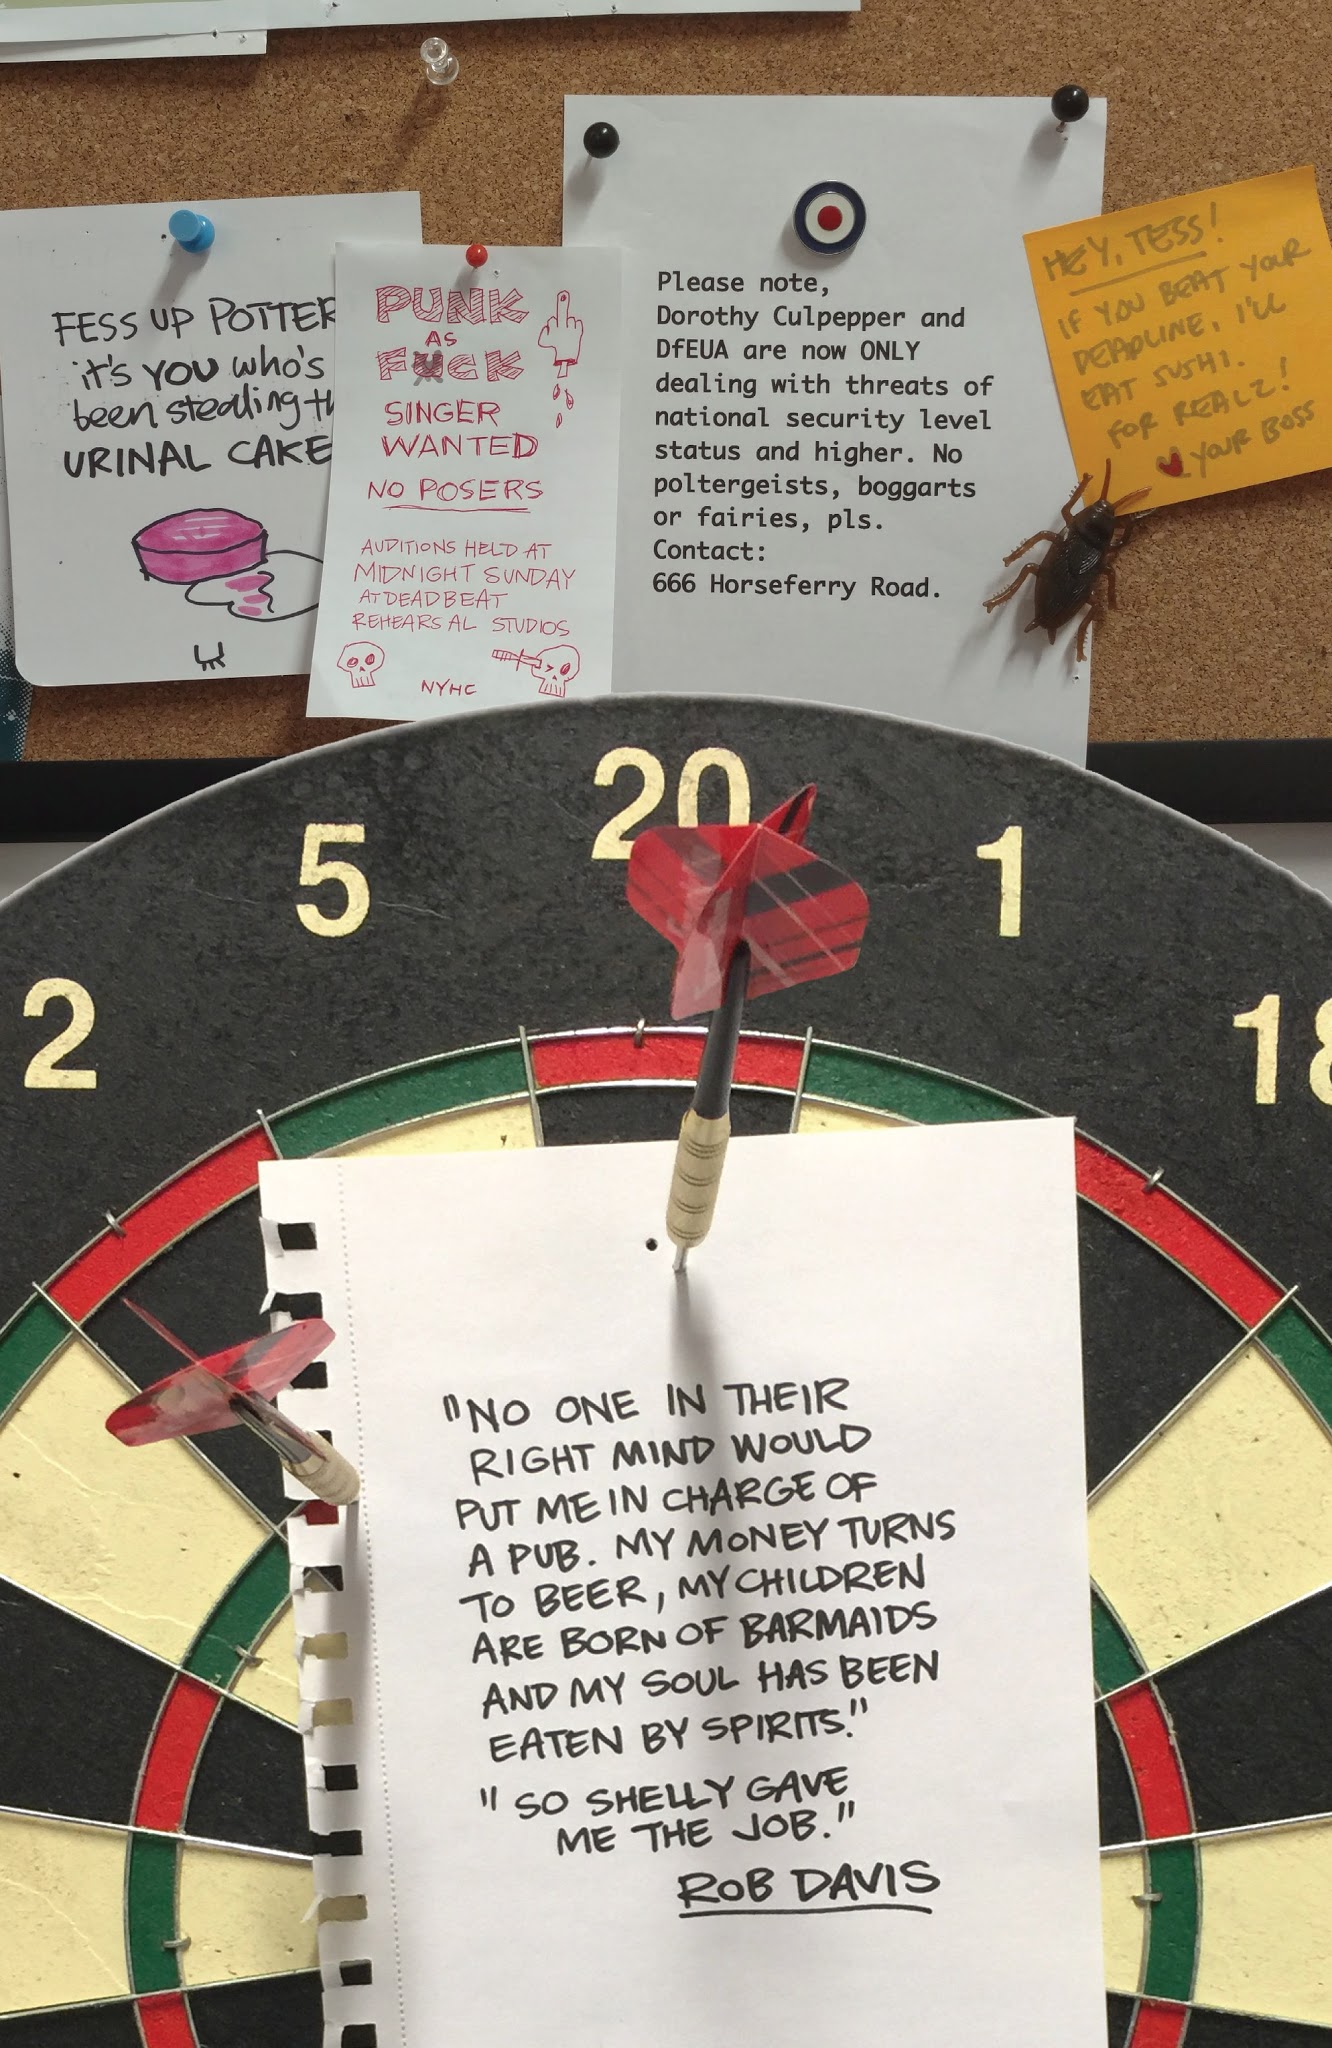 FESS UP POTTER
it's YOU who's
been stealing th
URINAL CAKE
PUNK
AS
FUCK
SINGER
WANTED
NO POSERS
AUDITIONS HELD AT
MIDNIGHT SUNDAY
AT DEADBEAT
REHEARSAL STUDIOS
NYHC
Please note,
Dorothy Culpepper and
DfEUA are now ONLY
dealing with threats of
national security level
status and higher. No
poltergeists, boggarts
or fairies, pls.
Contact:
666 Horseferry Road.
HEY, TESS!
IF YOU BEAT YOUR
DEADLINE, I'LL
EAT SUSHI.
FOR REALZ!
YOUR BOSS
2
5
20
1
18
"NO ONE IN THEIR
RIGHT MIND WOULD
PUT ME IN CHARGE OF
A PUB. MY MONEY TURNS
TO BEER, MY CHILDREN
ARE BORN OF BARMAIDS
AND MY SOUL HAS BEEN
EATEN BY SPIRITS."
"SO SHELLY GAVE
ME THE JOB."
ROB DAVIS